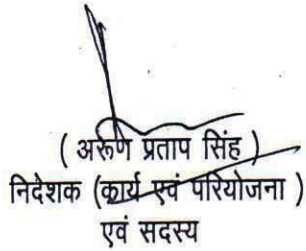 ( अरूण प्रताप सिंह )
निदेशक (कार्य एवं परियोजना )
एवं सदस्य